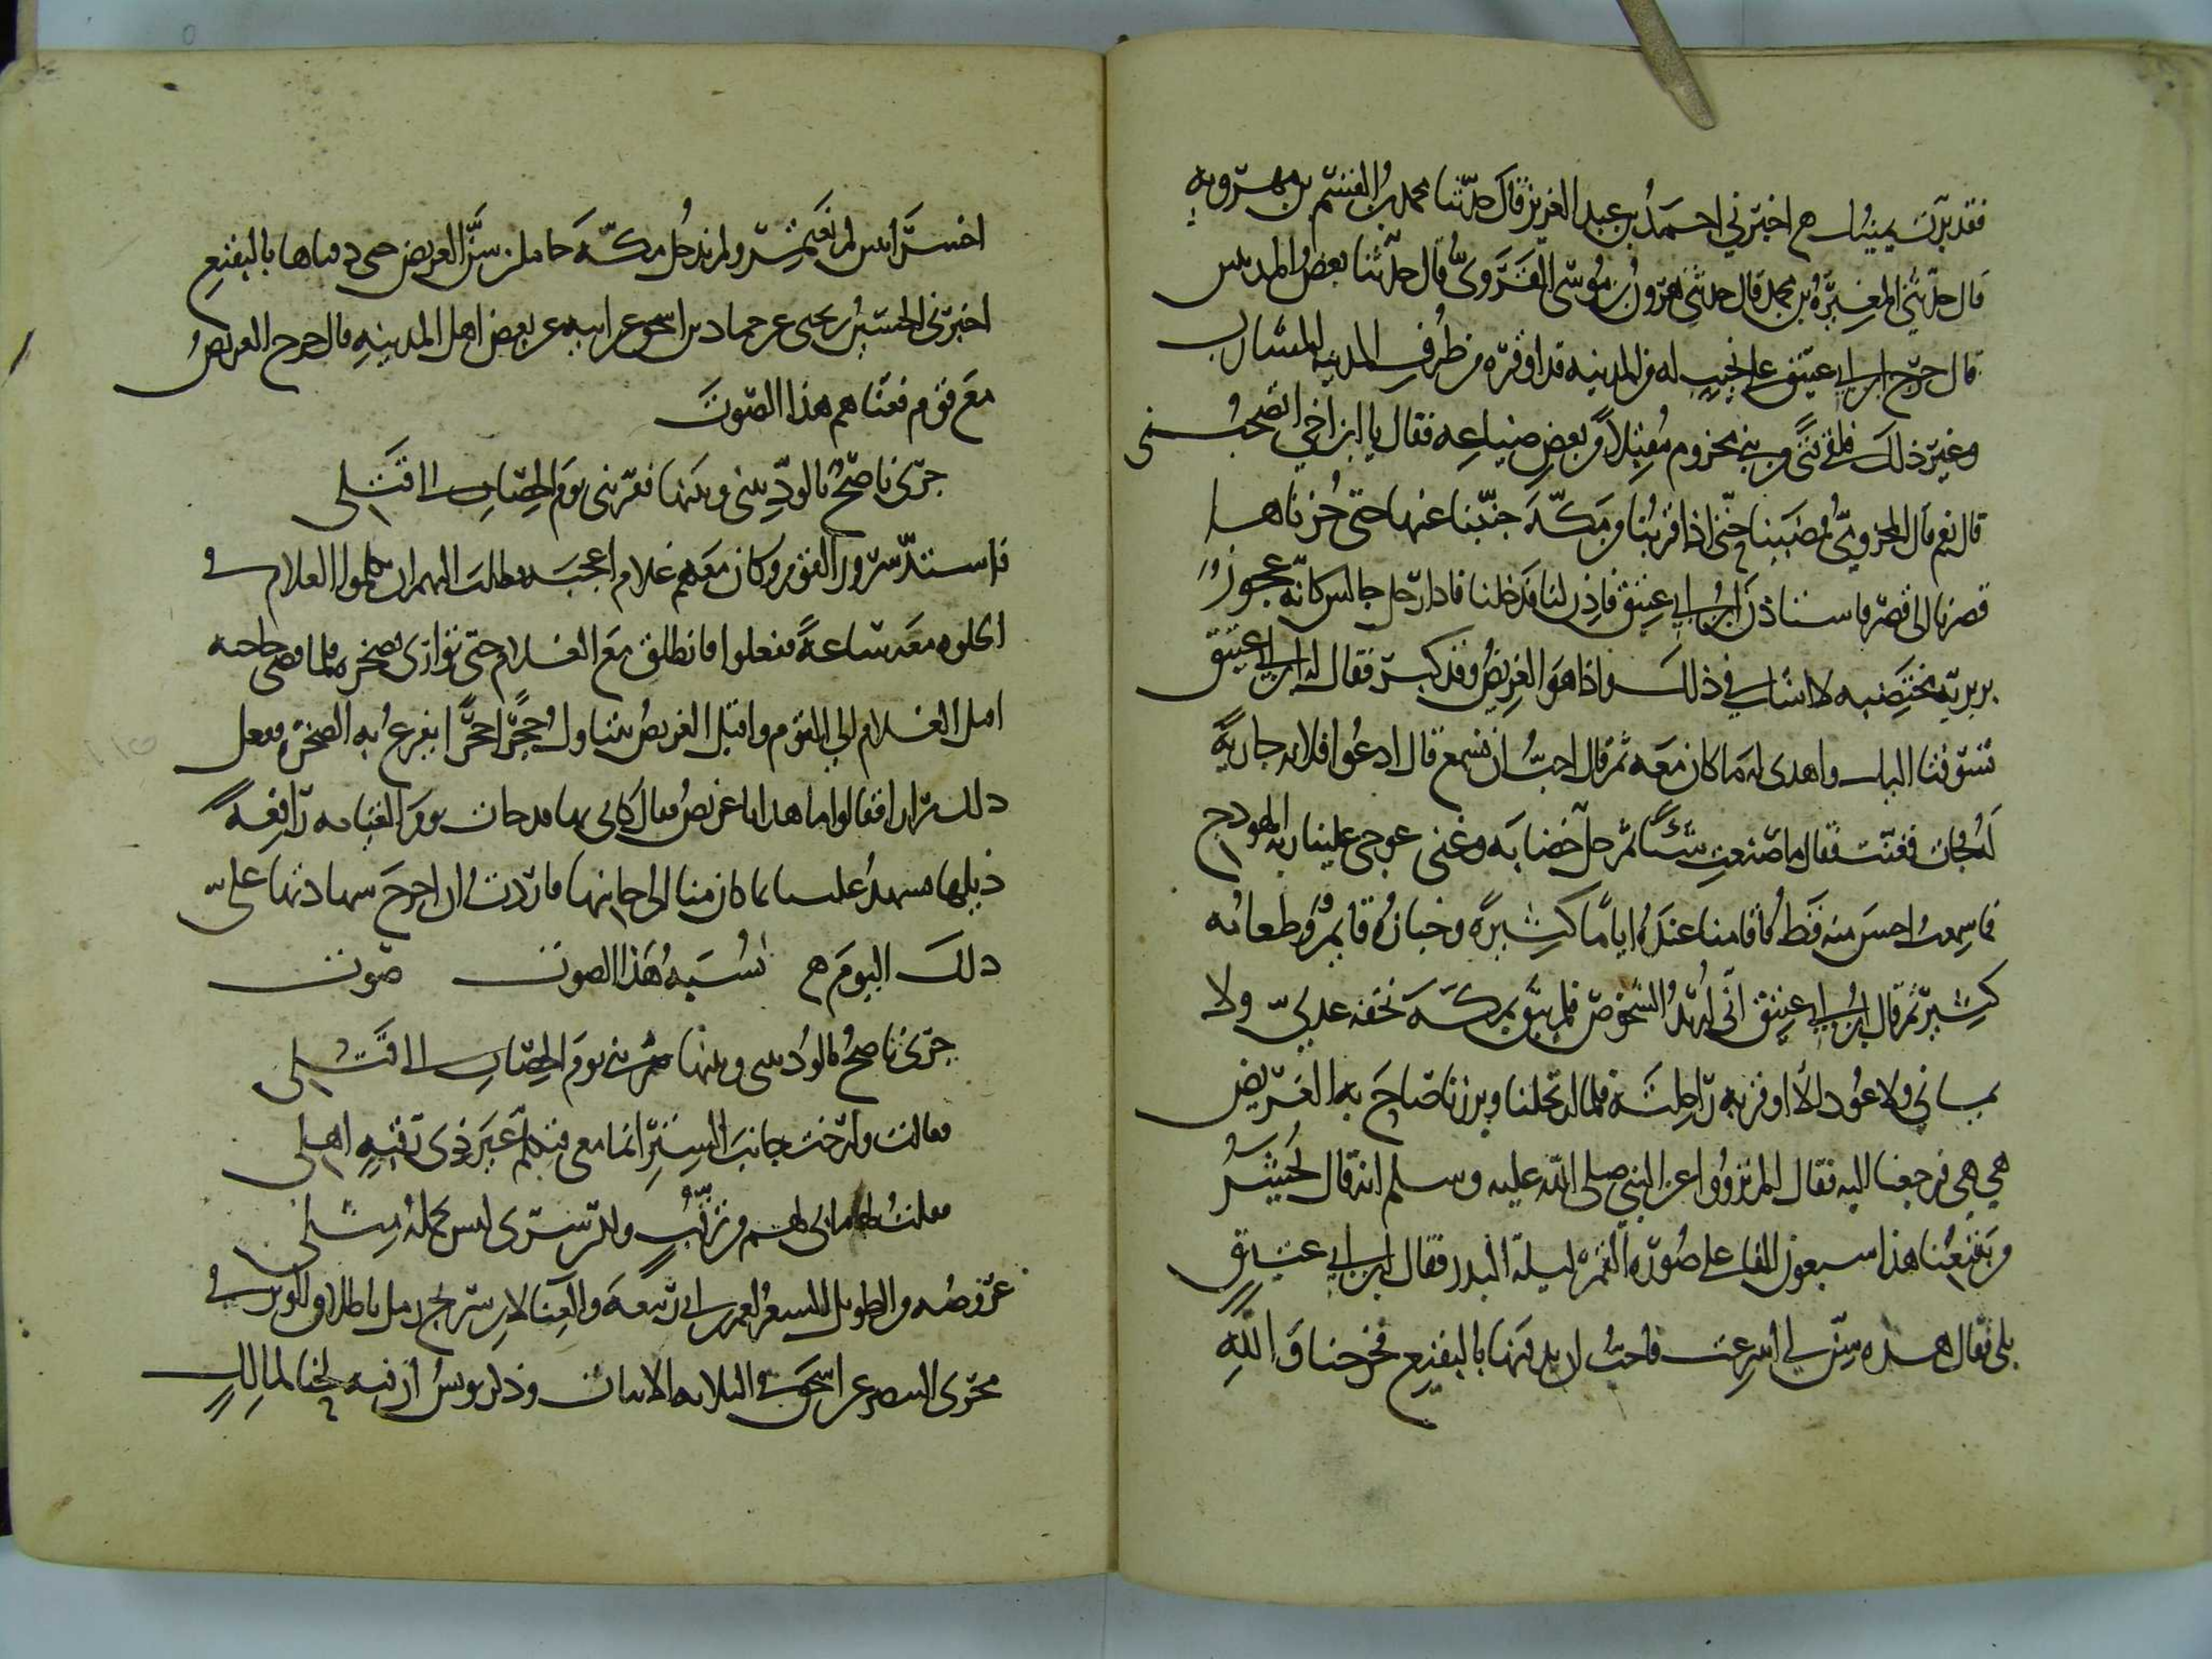 فقد برت يمينك هـ اخبرني احمد بن عبد العزيز قال حدثنا محمد بن القسم بن مهرويه
قال حدثني المغيرة بن محمد قال حدثني هرون بن موسى الفروي قال حدثنا بعض المدنيين
قال خرج ابن ابي عتيق على نجيب له من المدينة قد اوقره من ظرف المدينة المشارب
وغير ذلك فلقي فتى من بني مخزوم مقبلا من بعض ضياعه فقال يا ابن اخي اتصحبني
قال نعم قال المخزومي فمضينا حتى اذا قربنا من مكة جنبنا عنها حتى جزناها
فصرنا الى قصر فاستاذن ابن ابي عتيق فاذن لنا فدخلنا فاذا رجل جالس كانه عجوز
بربرية مختضبه لا اشك في ذلك واذا هو الغريض وقد كبر فقال له ابن ابي عتيق
تشوقنا اليك واهدى له ما كان معه ثم قال احب ان نسمع قال ادعوا فلانه جارية
له فجات فغنت فقال ما صنعت شيئا ثم حل خضابه وغنى عوجي علينا ربة الهودج
فما سمعت احسن منه قط فاقامنا عنده اياما كثيرة وخبازه قايم وطعامه
كثير ثم قال ابن ابي عتيق اني اريد الشخوص فلم يبق بمكة تحفة عدني ولا
يماني ولا عود الا اوقر به راحلته فلما ارتحلنا وبرزنا صاح به الغريض
هي هي فرجعنا اليه فقال الم تزووا عن النبي صلى الله عليه وسلم انه قال يحشر
من بقيعنا هذا سبعون الفا على صورة القمر ليلة البدر فقال ابن ابي عتيق
بلى فقال هذه سن لي انتزعت فاحب ان تدفنها بالبقيع فخرجنا والله
اخسر اثنين لم نعتمر ولم ندخل مكة حاملين سن الغريض حتى دفناها بالبقيع
اخبرني الحسين بن يحيى عن حماد بن اسحق عن ابيه عن بعض اهل المدينه قال خرج الغريض
مع قوم فغناهم هذا الصوت
جرى ناصح بالود بيني وبينها فقربني يوم الحصاب الى قتلي
فاستد سرور القوم وكان معهم غلام اعجبه فطلب اليهم ان يكلموا الغلام في
الخلوه معه ساعة ففعلوا فانطلق مع الغلام حتى توارى بصخرة فلما قضى حاجته
اقبل الغلام الى القوم واقبل الغريض يتناول حجرا حجرا يقرع به الصخرة ففعل
ذلك مرارا فقالوا ما هذا يا غريض فقال كاني بها قد جات يوم القيامه رافعة
ذيلها تشهد علينا بما كان منا الى جانبها فاردت ان اجرح شهادتها علي
ذلك اليوم هـ نسبة هذا الصوت صوت
جرى ناصح بالود بيني وبينها فقربني يوم الحصاب الى قتلي
فقالت وارخت جانب الستر انما معي فتكلم غير ذي رقبة اهلي
فقلت لها ما بي لهم من ترقب ولكن سري ليس يحمله مثلي
عروضه من الطويل الشعر لعمر بن ابي ربيعة والغنا لابن سريج رمل باطلاق الوتر في
مجرى البنصر عن اسحق في الثلاثه الابيات وذكر يونس ان فيه لحنا لمالك